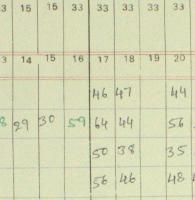 3 15 15 33 33 33 33 33
3 14 15 16 17 18 19 20
46 47 44
8 29 30 59 64 44 56
50 38 35
56 46 48